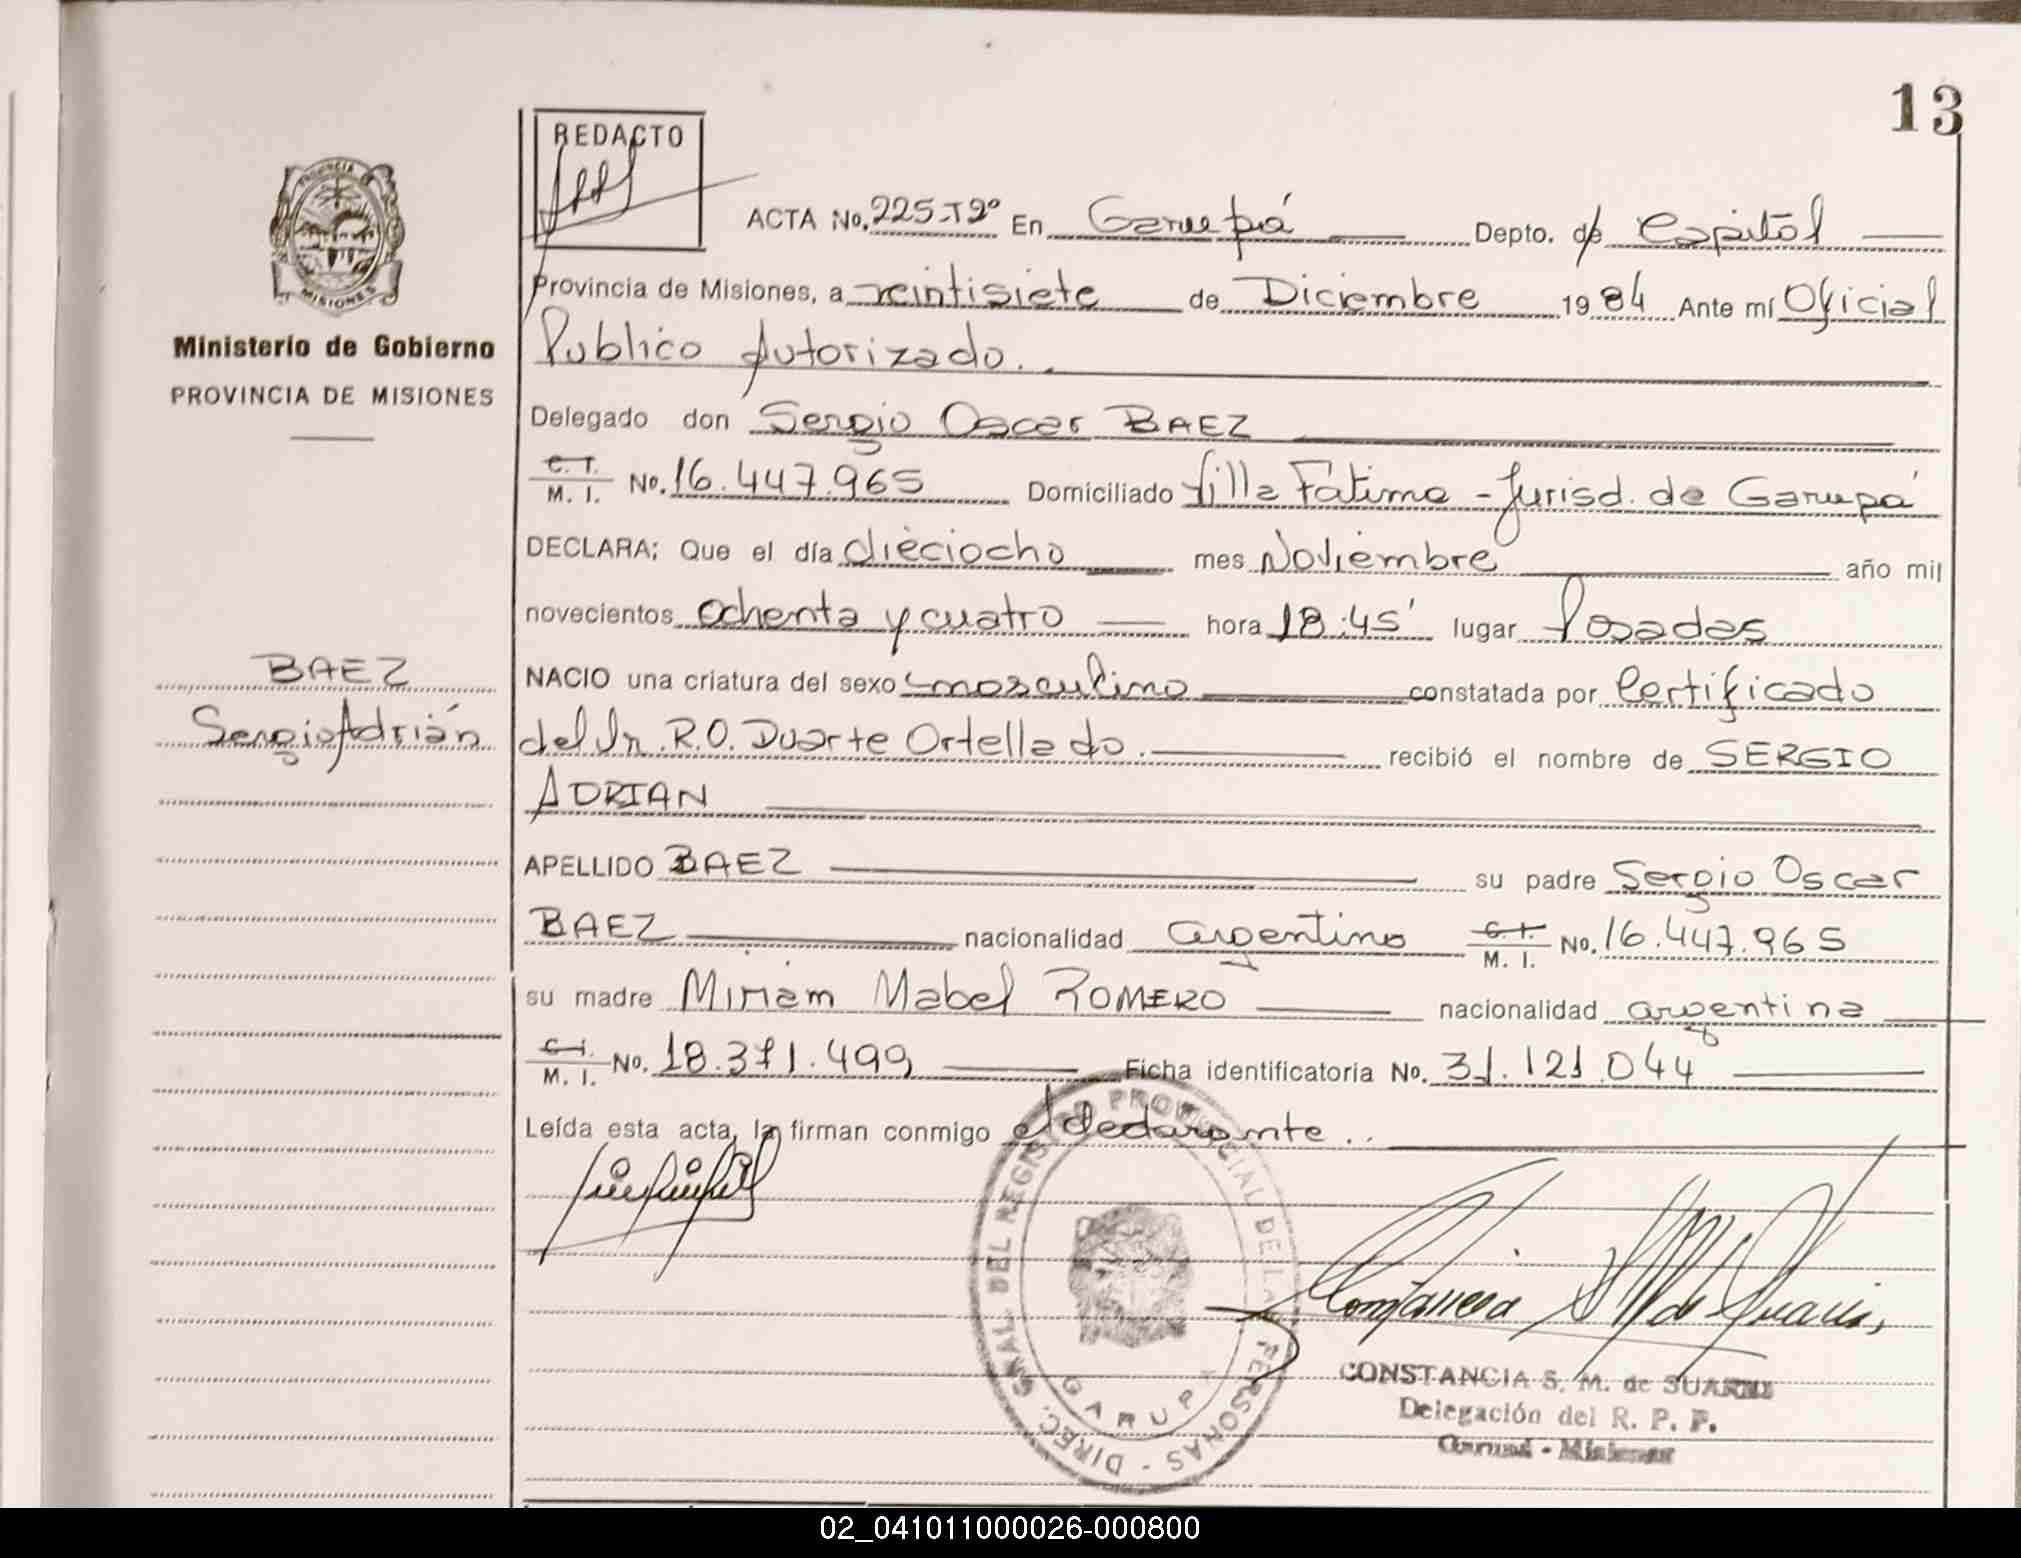 13
REDACTO
ACTA No. 225-T2º En Garupá Depto. de Capital
PROVINCIA
MISIONES
Provincia de Misiones, a veintisiete de Diciembre 1984 Ante mí Oficial
Ministerio de Gobierno
Publico Autorizado.
PROVINCIA DE MISIONES
Delegado don Sergio Oscar BAEZ
C. I.
M. I. No. 16.447.965 Domiciliado Villa Fátima - Jurisd. de Garupá
DECLARA; Que el día dieciocho mes Noviembre año mil
novecientos ochenta y cuatro hora 18:45' lugar Posadas
BAEZ
NACIO una criatura del sexo masculino constatada por Certificado
Sergio Adrián
del Dr. R.O. Duarte Ortellado. recibió el nombre de SERGIO
ADRIAN
APELLIDO BAEZ su padre Sergio Oscar
BAEZ nacionalidad argentino C. I. M. I. No. 16.447.965
su madre Miriam Mabel ROMERO nacionalidad argentina
C. I.
M. I. No. 18.371.499 Ficha identificatoria No. 31.121.044
Leída esta acta, la firman conmigo el declarante..
DIREC. GRAL. DEL REGISTRO PROVINCIAL DE LAS PERSONAS -
GARUPA
CONSTANCIA S. M. de SUAREZ
Delegación del R. P. P.
Garupá - Misiones
02_041011000026-000800